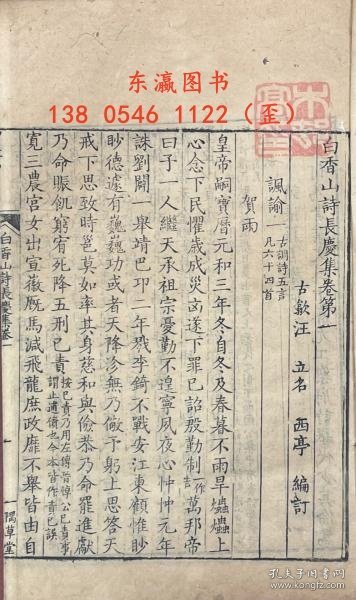 东瀛图书
138 0546 1122（歪）
白香山詩長慶集卷第一
古歙汪 立名 西亭 編訂
諷諭一 古調詩五言凡六十四首
賀雨
皇帝嗣寶曆元和三年冬自冬及春暮不雨旱爞爞上
心念下民懼歲成災凶遂下罪已詔殷勤制一作告萬邦帝
曰予一人繼天承祖宗憂勤不遑寧夙夜心忡忡元年
誅劉闢一舉靖巴邛二年戮李錡不戰安江東顧惟眇
眇德遽有巍巍功或者天降沴無乃儆予躬上思答天
戒下思致時邕莫如率其身慈和與儉恭乃命罷進獻
乃命賑飢窮宥死降五刑已責
寬三農宮女出宣徽厩馬減飛龍庶政靡不舉皆由自
白香山詩長慶集卷一
一
一隅草堂
孔夫子旧书网